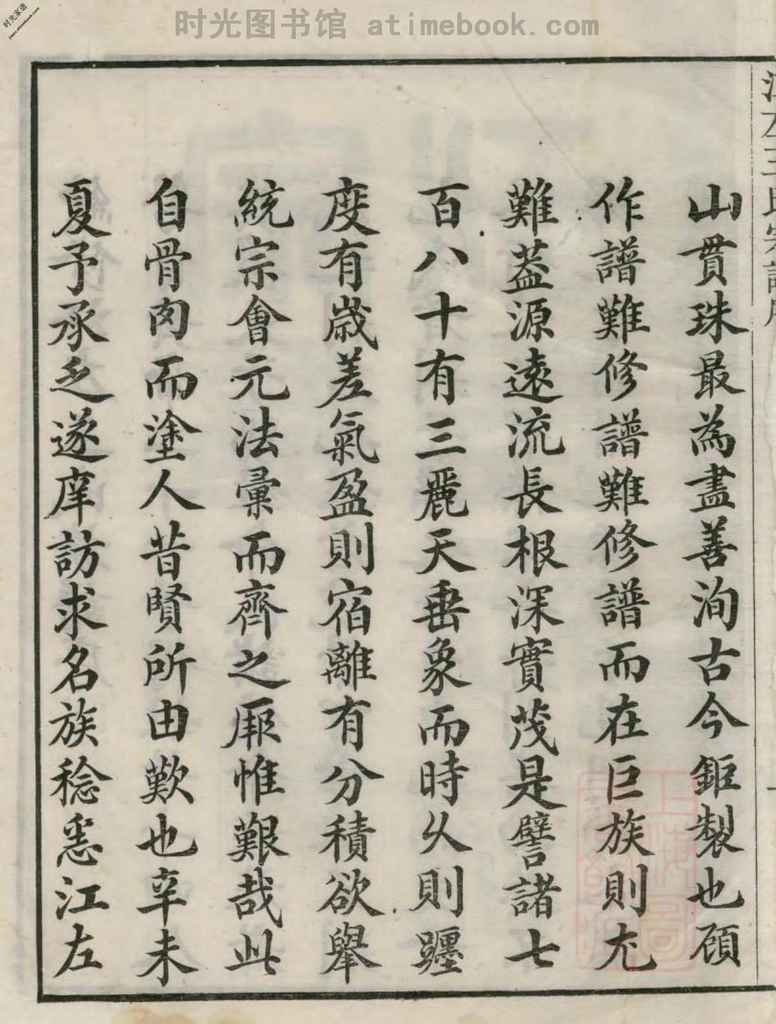 时光图书馆 atimebook.com
山貫珠最為盡善洵古今鉅製也頋
作譜難修譜難修譜而在巨族則尤
難葢源遠流長根深實茂是譬諸七
百八十有三麗天垂象而時久則躔
度有歲差氣盈則宿離有分積欲舉
統宗會元法彙而齊之厥惟艱哉此
自骨肉而塗人昔賢所由歎也辛未
夏予承乏遂庠訪求名族稔悉江左